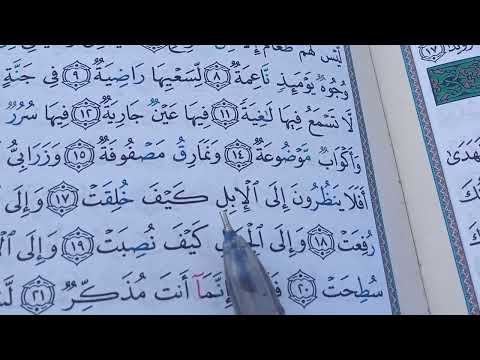 لَيْسَ لَهُمْ طَعَامٌ
وُجُوهٌ يَوْمَئِذٍ نَّاعِمَةٌ ٨ لِّسَعْيِهَا رَاضِيَةٌ ٩ فِي جَنَّةٍ
لَّا تَسْمَعُ فِيهَا لَٰغِيَةً ١١ فِيهَا عَيْنٌ جَارِيَةٌ ١٢ فِيهَا سُرُرٌ
وَأَكْوَابٌ مَّوْضُوعَةٌ ١٤ وَنَمَارِقُ مَصْفُوفَةٌ ١٥ وَزَرَابِيُّ
أَفَلَا يَنظُرُونَ إِلَى الْإِبِلِ كَيْفَ خُلِقَتْ ١٧ وَإِلَى
رُفِعَتْ ١٨ وَإِلَى كَيْفَ نُصِبَتْ ١٩ وَإِلَى
سُطِحَتْ ٢٠ إِنَّمَا أَنتَ مُذَكِّرٌ ٢١